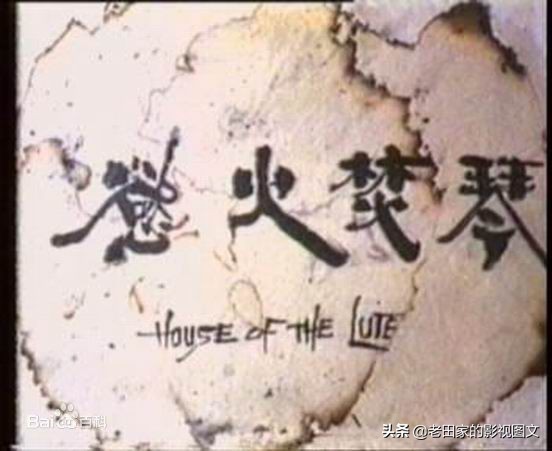 慾火焚琴
HOUSE OF THE LUTE
Bai百科
头条 @老田家的影视图文